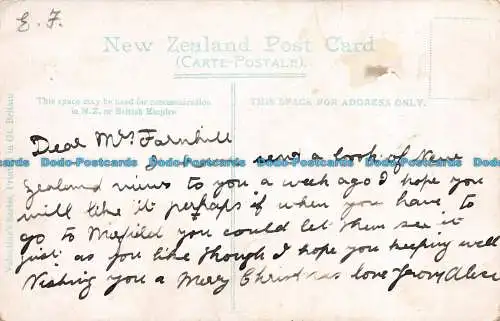 E. F.
New Zealand Post Card
(CARTE-POSTALE).
This space may be used for communication
in N.Z. or British Empire
THIS SPACE FOR ADDRESS ONLY.
Valentine's Series, Printed in Gt. Britain
Dear Mrs. Farnhill
I have send a book of New
Zealand views to you a week ago I hope you
will like it perhaps if when you have to
go to Mirfield you could let them see it
just as you like though I hope you keeping well
Wishing you a Merry Christmas love from Alice
Dodo-Postcards Dodo-Postcards Dodo-Postcards Dodo-Postcards Dodo-Postcards